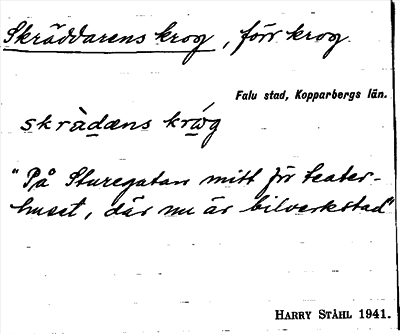 Skräddarens krog, förr krog.
Falu stad, Kopparbergs län.
skrädæns krωg
"På Sturegatan mitt för teater-
huset, där nu är bilverkstad"
HARRY STÅHL 1941.